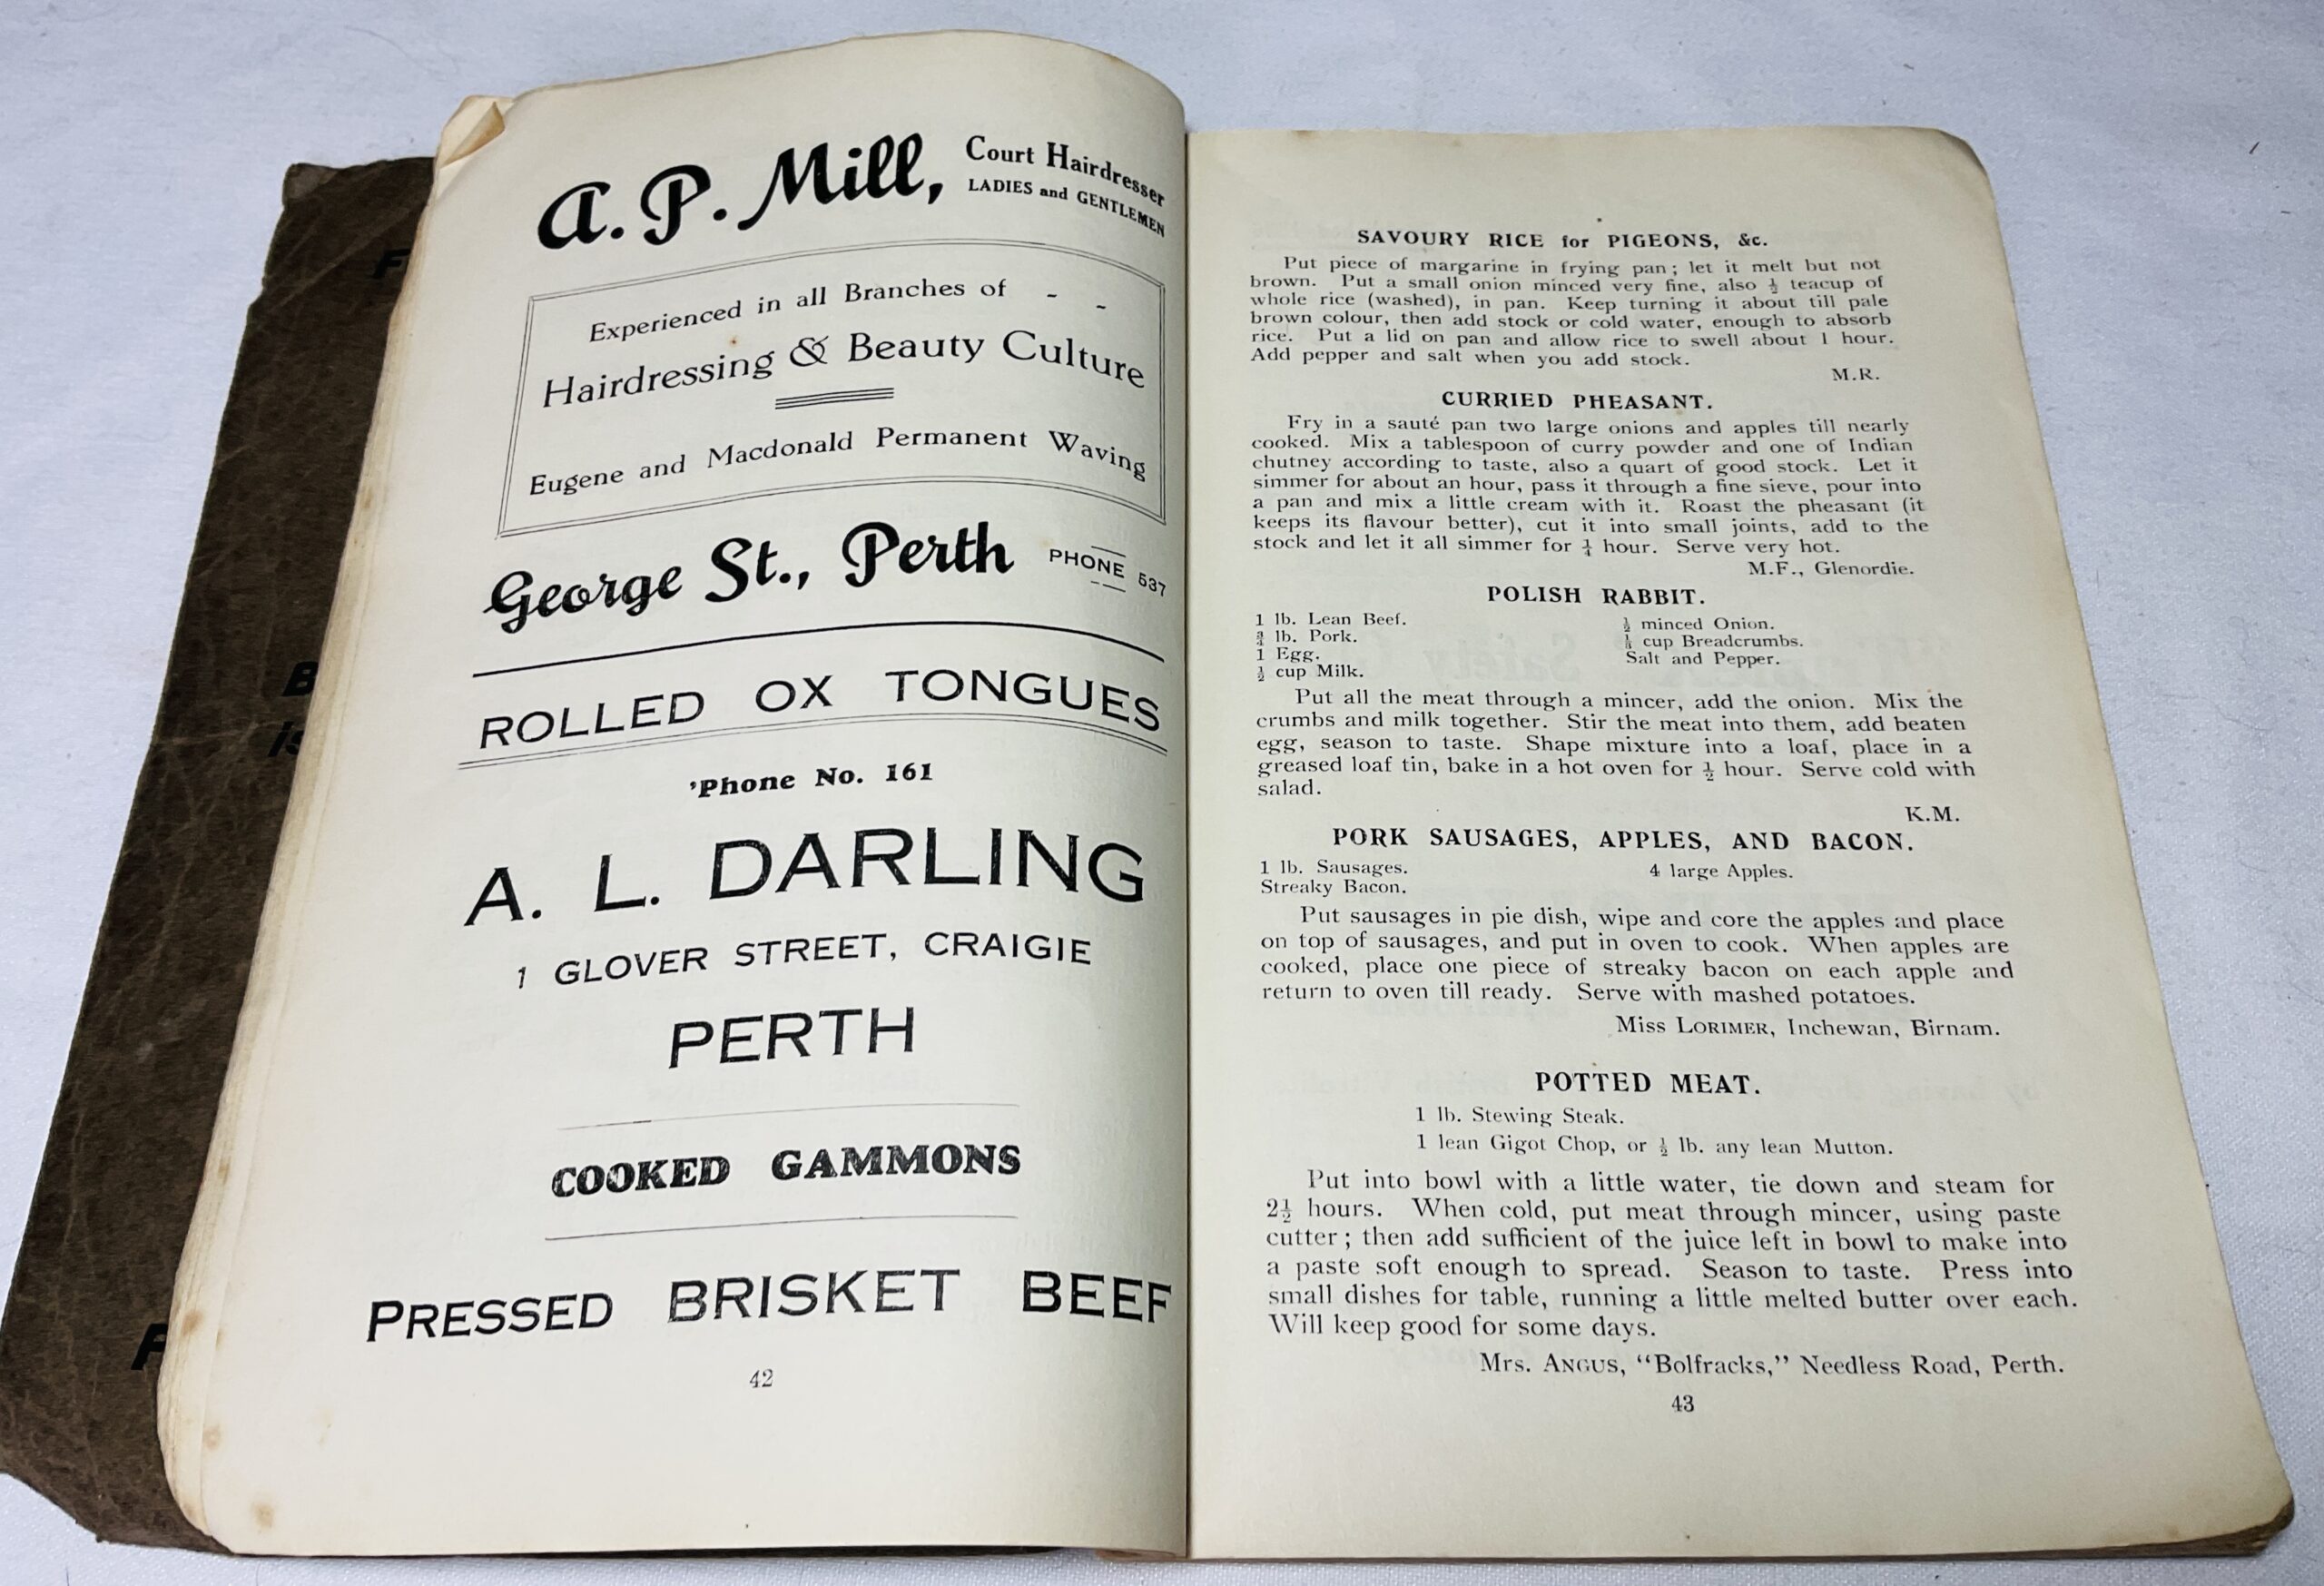 A. P. Mill,
Court Hairdresser
LADIES and GENTLEMEN
Experienced in all Branches of - -
Hairdressing & Beauty Culture
Eugene and Macdonald Permanent Waving
George St., Perth
PHONE 537
ROLLED OX TONGUES
'Phone No. 161
A. L. DARLING
1 GLOVER STREET, CRAIGIE
PERTH
COOKED GAMMONS
PRESSED BRISKET BEEF
42
SAVOURY RICE for PIGEONS, &c.
Put piece of margarine in frying pan; let it melt but not
brown. Put a small onion minced very fine, also ½ teacup of
whole rice (washed), in pan. Keep turning it about till pale
brown colour, then add stock or cold water, enough to absorb
rice. Put a lid on pan and allow rice to swell about 1 hour.
Add pepper and salt when you add stock.
M.R.
CURRIED PHEASANT.
Fry in a sauté pan two large onions and apples till nearly
cooked. Mix a tablespoon of curry powder and one of Indian
chutney according to taste, also a quart of good stock. Let it
simmer for about an hour, pass it through a fine sieve, pour into
a pan and mix a little cream with it. Roast the pheasant (it
keeps its flavour better), cut it into small joints, add to the
stock and let it all simmer for ¼ hour. Serve very hot.
M.F., Glenordie.
POLISH RABBIT.
1 lb. Lean Beef.
¾ lb. Pork.
1 Egg.
½ cup Milk.
½ minced Onion.
cup Breadcrumbs.
Salt and Pepper.
Put all the meat through a mincer, add the onion. Mix the
crumbs and milk together. Stir the meat into them, add beaten
egg, season to taste. Shape mixture into a loaf, place in a
greased loaf tin, bake in a hot oven for ½ hour. Serve cold with
salad.
K.M.
PORK SAUSAGES, APPLES, AND BACON.
1 lb. Sausages.
Streaky Bacon.
4 large Apples.
Put sausages in pie dish, wipe and core the apples and place
on top of sausages, and put in oven to cook. When apples are
cooked, place one piece of streaky bacon on each apple and
return to oven till ready. Serve with mashed potatoes.
Miss LORIMER, Inchewan, Birnam.
POTTED MEAT.
1 lb. Stewing Steak.
1 lean Gigot Chop, or ½ lb. any lean Mutton.
Put into bowl with a little water, tie down and steam for
2½ hours. When cold, put meat through mincer, using paste
cutter; then add sufficient of the juice left in bowl to make into
a paste soft enough to spread. Season to taste. Press into
small dishes for table, running a little melted butter over each.
Will keep good for some days.
Mrs. ANGUS, "Bolfracks," Needless Road, Perth.
43